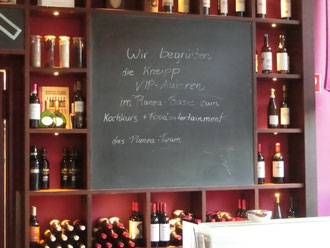 Wir begrüßen
die Kneipp
VIP-Autoren
im Planea-Basic zum
Kochkurs + Foodentertainment
das Planea-Team